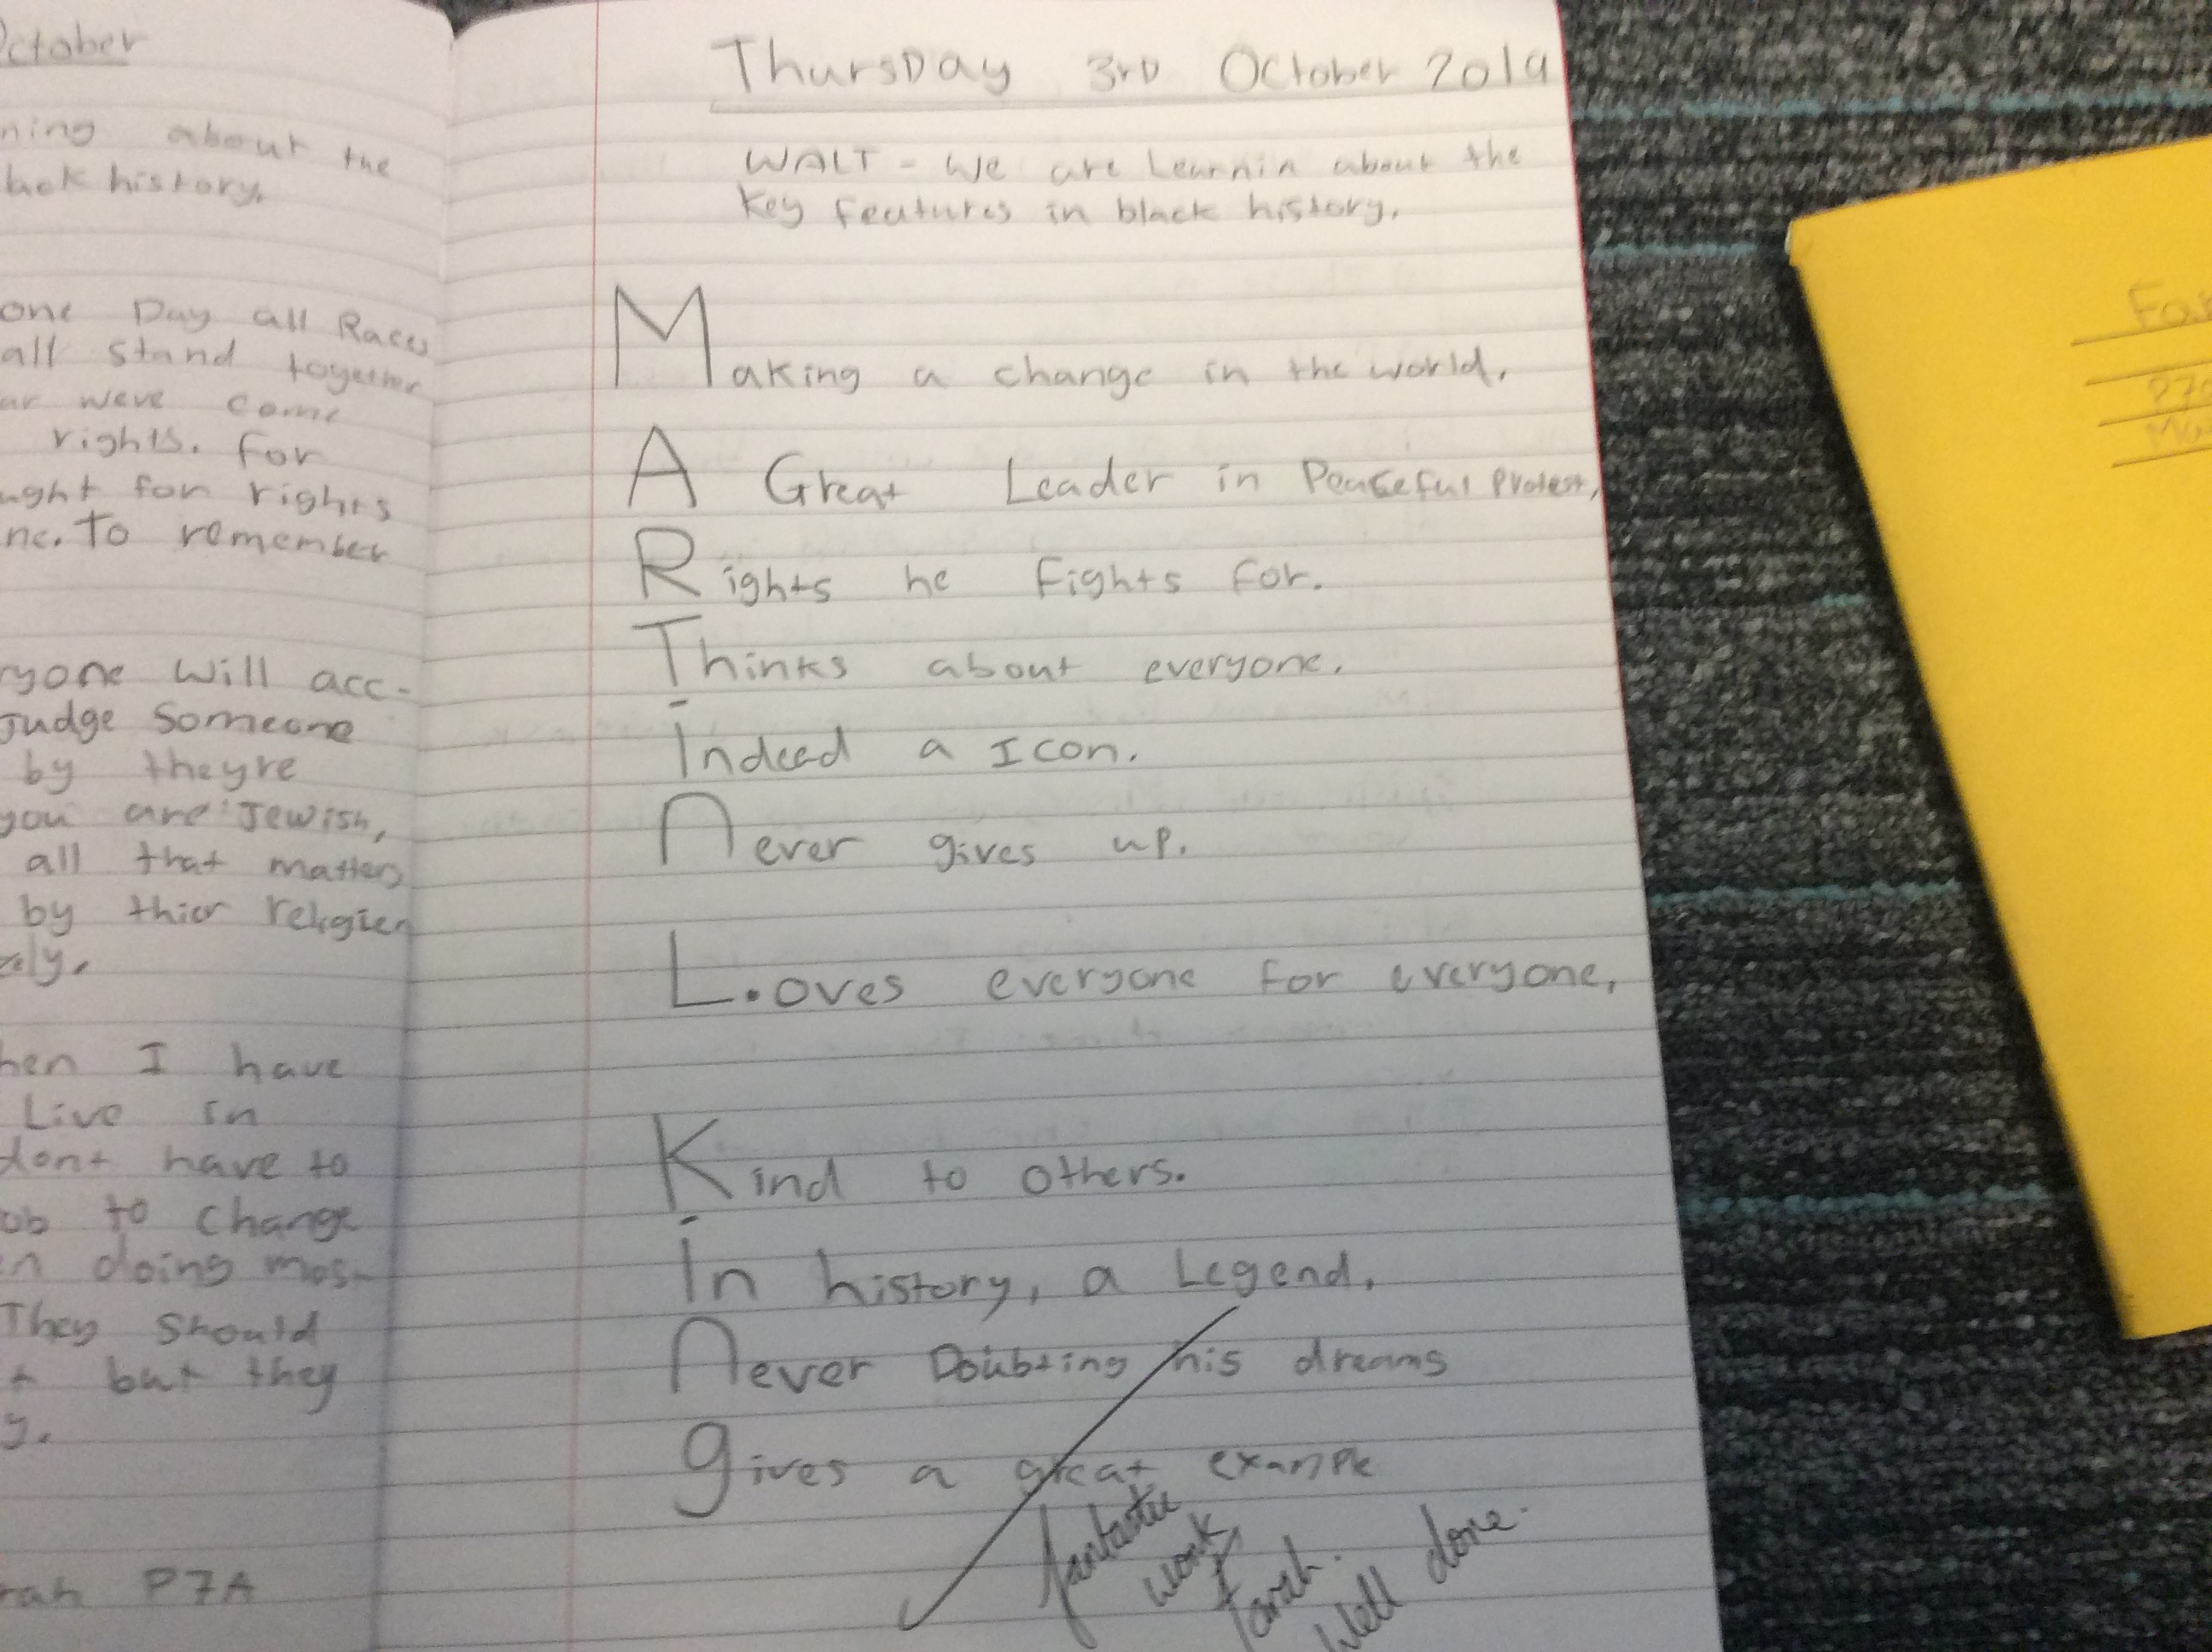 October
ning about the
back history.
one Day all Races
all stand together
ar weve come
rights. for
ught for rights
ne. To remember
ryone will acc-
judge Someone
by theyre
you are Jewish,
all that matters
by thier religien
ely.
hen I have
Live in
dont have to
ob to change
en doing most
They should
t but they
y.
rah P7A
ThursDay 3rD October 2019
WALT - We are Learnin about the
Key features in black history.
Making a change in the world.
A Great Leader in Peaceful Protest,
Rights he Fights for.
Thinks about everyone.
Indeed a Icon.
Never gives up.
L.oves everyone for everyone,
Kind to others.
In history, a Legend.
Never Doubting his dreams
gives a great example
fantastic
work
Farah.
Well done.
Fa
P7
Ma